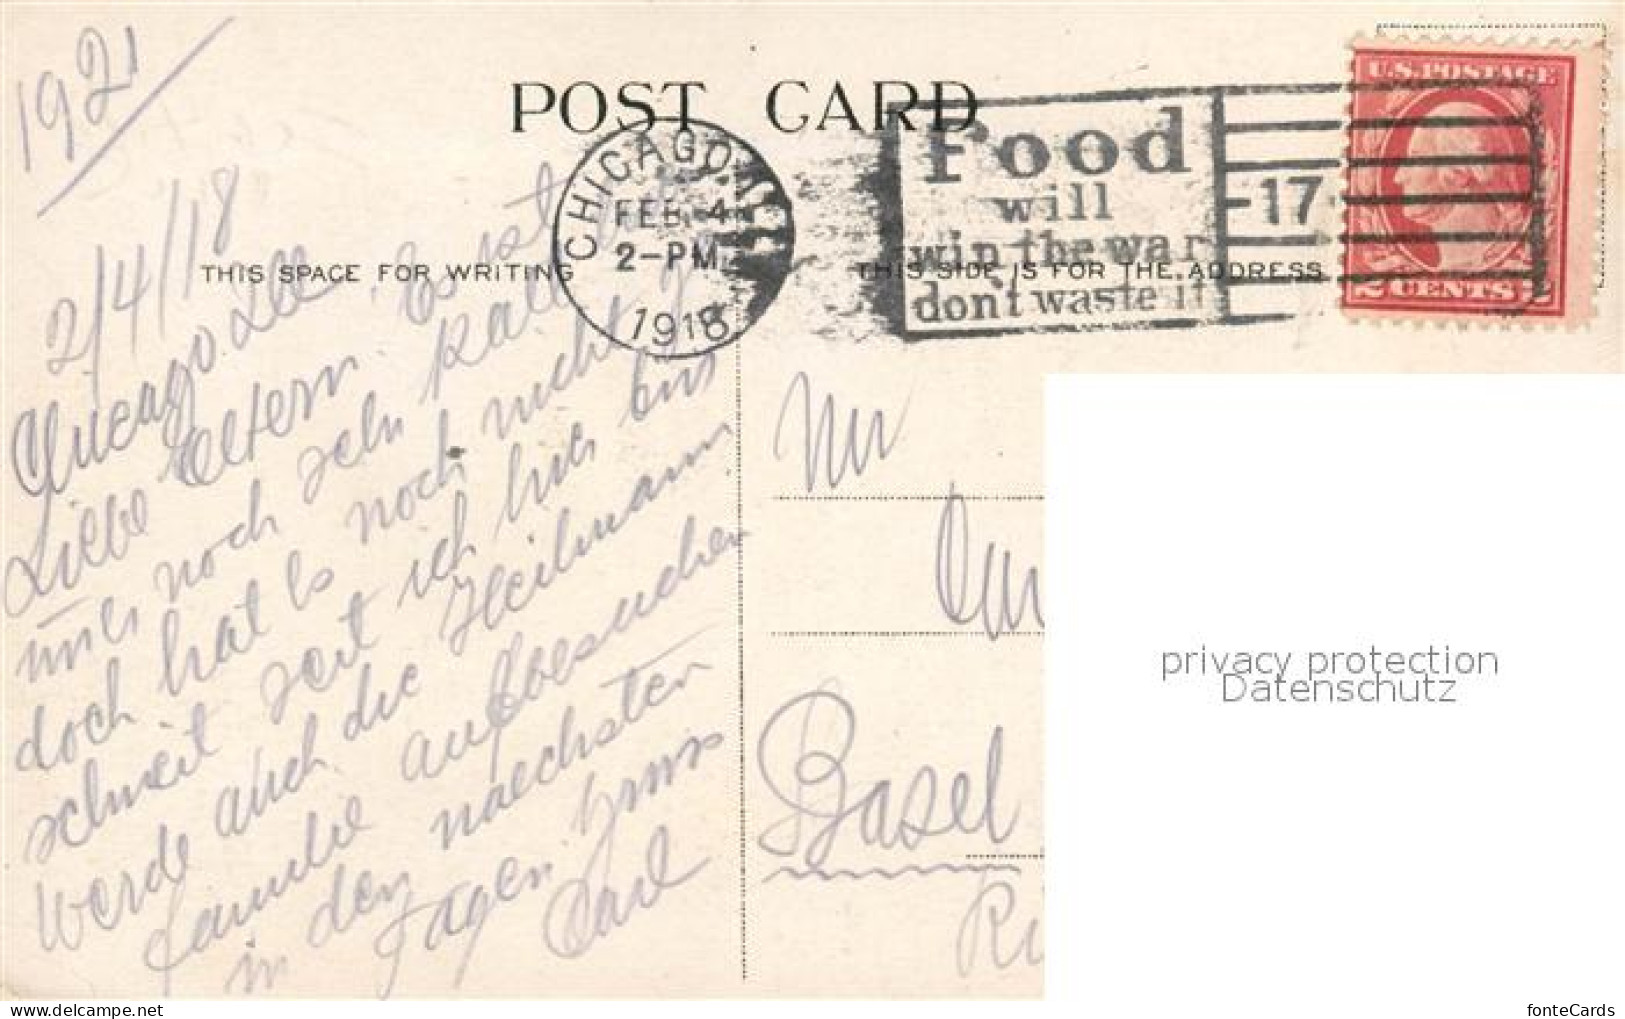 1921
POST CARD
CHICAGO, ILL.
FEB 4
2-PM
1918
Food
will
win the war
don't waste it
-17
U.S. POSTAGE
2 CENTS 2
THIS SPACE FOR WRITING
THIS SIDE IS FOR THE ADDRESS
2/4/18
Chicago Ill
Liebe Eltern. Es ist
immer noch sehr kalt
doch hat es noch nicht
schneit seit ich hier bin
werde auch die Heilmann
familie aufbesuchen
in den naechsten
Tagen. Gruss
Carl
Mr
Basel
privacy protection
Datenschutz
fonteCards